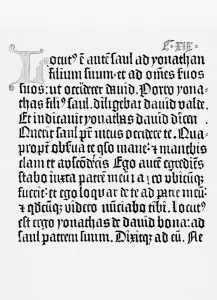 C·XIX·
Locut⁹ ē autē saul ad yonathan
filium suum· et ad om̄es s̄uos
suos: ut occiderēt david. Porro yona-
thas fili⁹ saul, diligebat david valde.
Et indicavit yonathas david dicēn
Querit saul pr̄ meus occidere te. Qua-
propt̄ observa te q̄so mane: et manebis
clam et abscōderis. Ego autē egrediēs
stabo iuxta patrem meū ī agro ubicūq;
fuerit: et ego loquar de te ad patrē meū:
et qdcūq; videro nūciabo tibi. Locut⁹
est ergo yonathas de david bona: ad
saul patrem suum. Dixitq; ad eū. Ne